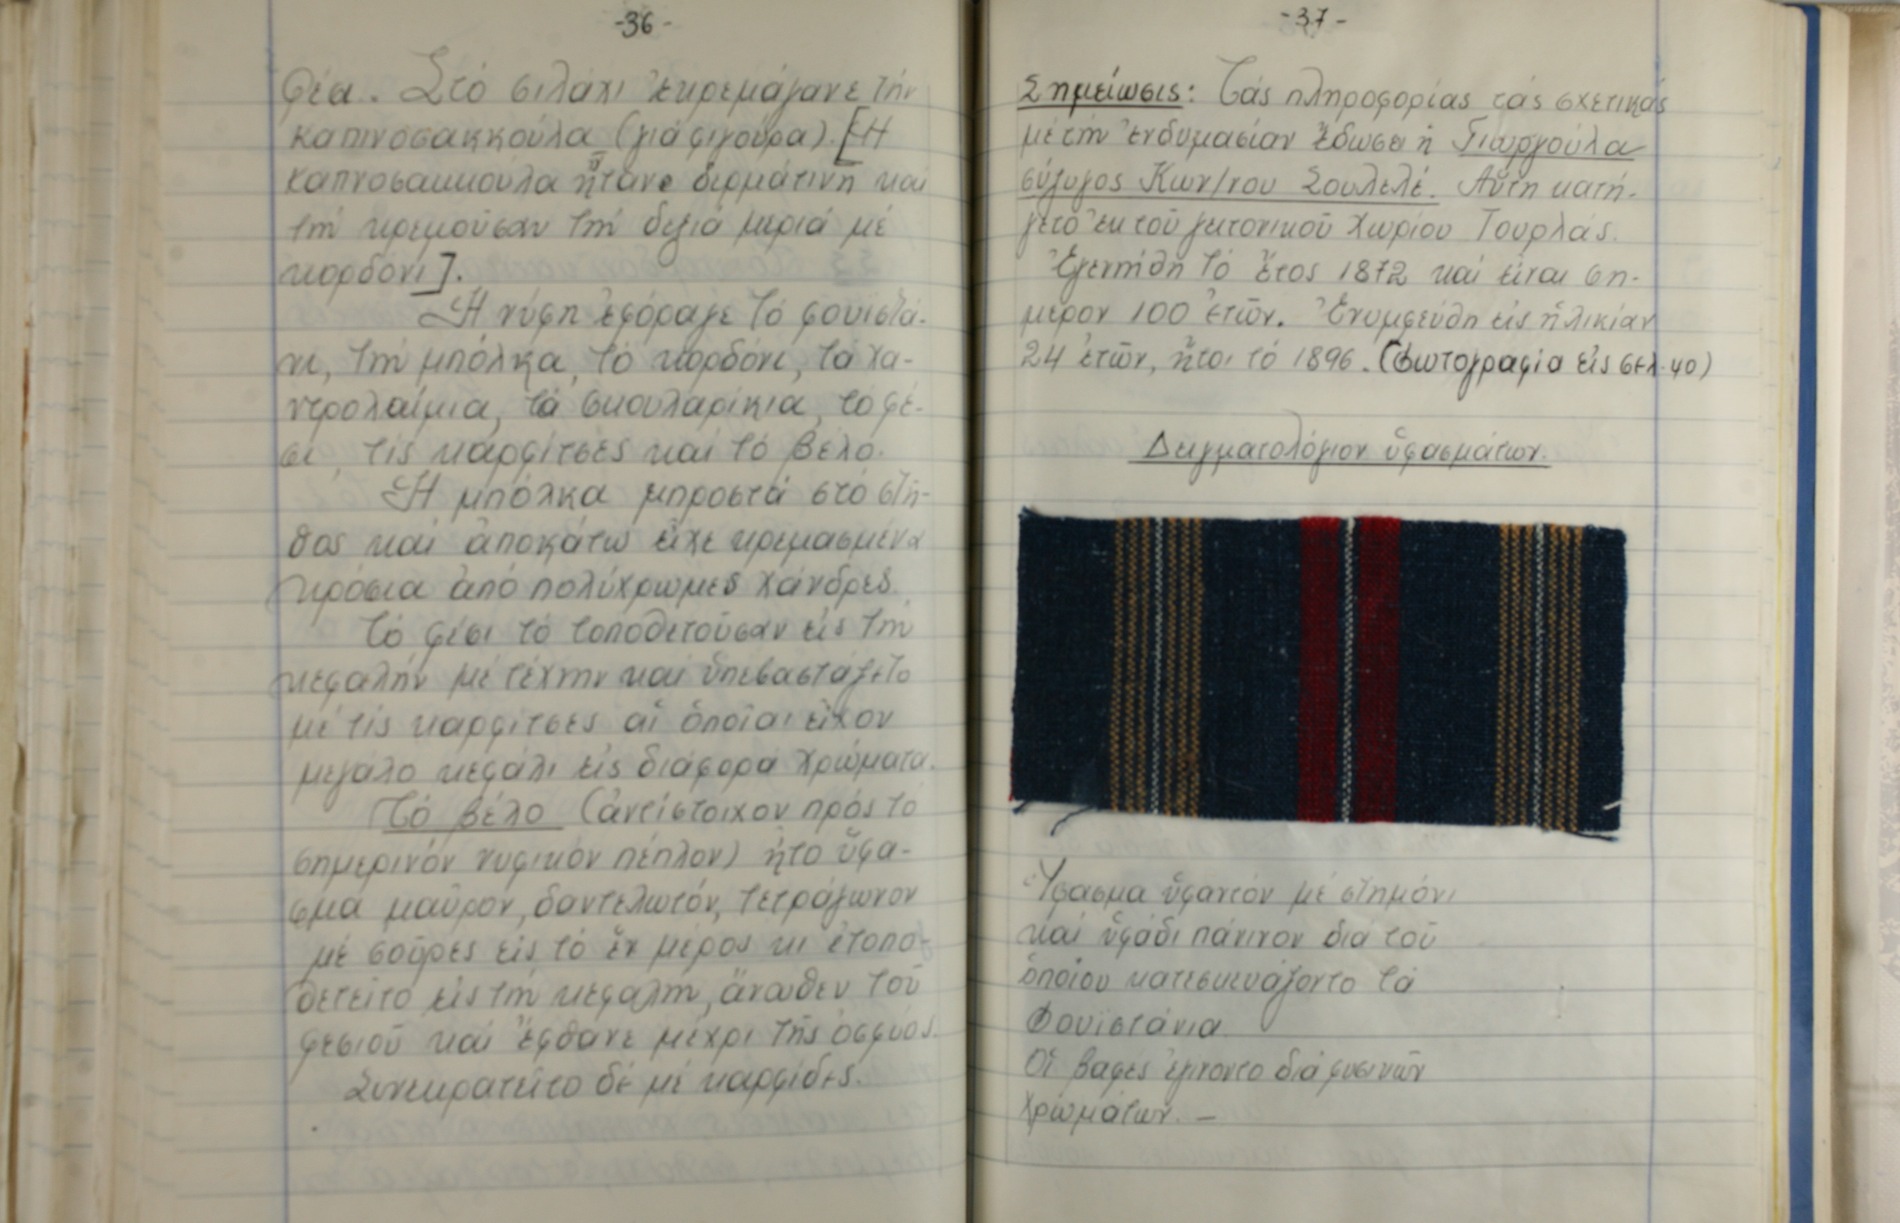 -36-
φέα. Στό σιλάχι ἐκρεμάγανε τήν
καπνοσακκούλα (γιά φιγούρα). [Ἡ
καπνοσακκούλα ἤτανε δερμάτινη καί
τή κρεμοῦσαν τή δεξιά μεριά μέ
κορδόνι].
Ἡ νύφη ἐφόραγε τό φουιστά-
νι, τή μπόλκα, τό κορδόνι, τά χα-
ντρολαίμια, τά σκουλαρίκια, τό φέ-
σι, τίς καρφίτσες καί τό βέλο.
Ἡ μπόλκα μπροστά στό στῆ-
θος καί ἀποκάτω εἶχε κρεμασμένα
κρόσια ἀπό πολύχρωμες χάνδρες.
Τό φέσι τό τοποθετοῦσαν εἰς τήν
κεφαλήν μέ τέχνην καί ὑπεβαστάζετο
μέ τίς καρφίτσες αἱ ὁποῖαι εἶχον
μεγάλο κεφάλι εἰς διάφορα χρώματα.
Τό βέλο (ἀντίστοιχον πρός τό
σημερινόν νυφικόν πέπλον) ἦτο ὕφα-
σμα μαῦρον, δαντελωτόν, τετράγωνον
μέ σοῦρες εἰς τό ἕν μέρος κι ἐτοπο-
θετεῖτο εἰς τή κεφαλή, ἄνωθεν τοῦ
φεσιοῦ καί ἔφθανε μέχρι τῆς ὀσφύος.
Συνεκρατεῖτο δέ μέ καρφίδες.
-37-
Σημείωσις: Τάς πληροφορίας τάς σχετικάς
μέ τήν ἐνδυμασίαν ἔδωσε ἡ Γιωργούλα
σύζυγος Κων/νου Σουλελέ. Αὕτη κατή-
γετο ἐκ τοῦ γειτονικοῦ χωρίου Τουρλάς.
Ἐγεννήθη τό ἔτος 1872 καί εἶναι σή-
μερον 100 ἐτῶν. Ἐνυμφεύθη εἰς ἡλικίαν
24 ἐτῶν, ἤτοι τό 1896. (Φωτογραφία εἰς σελ. 40)
Δειγματολόγιον ὑφασμάτων.
Ὕφασμα ὑφαντόν μέ στημόνι
καί ὑφάδι πάνινον διά τοῦ
ὁποίου κατεσκευάζοντο τά
Φουϊστάνια
Οἱ βαφές ἐγίνοντο διά φυσικῶν
χρωμάτων. –